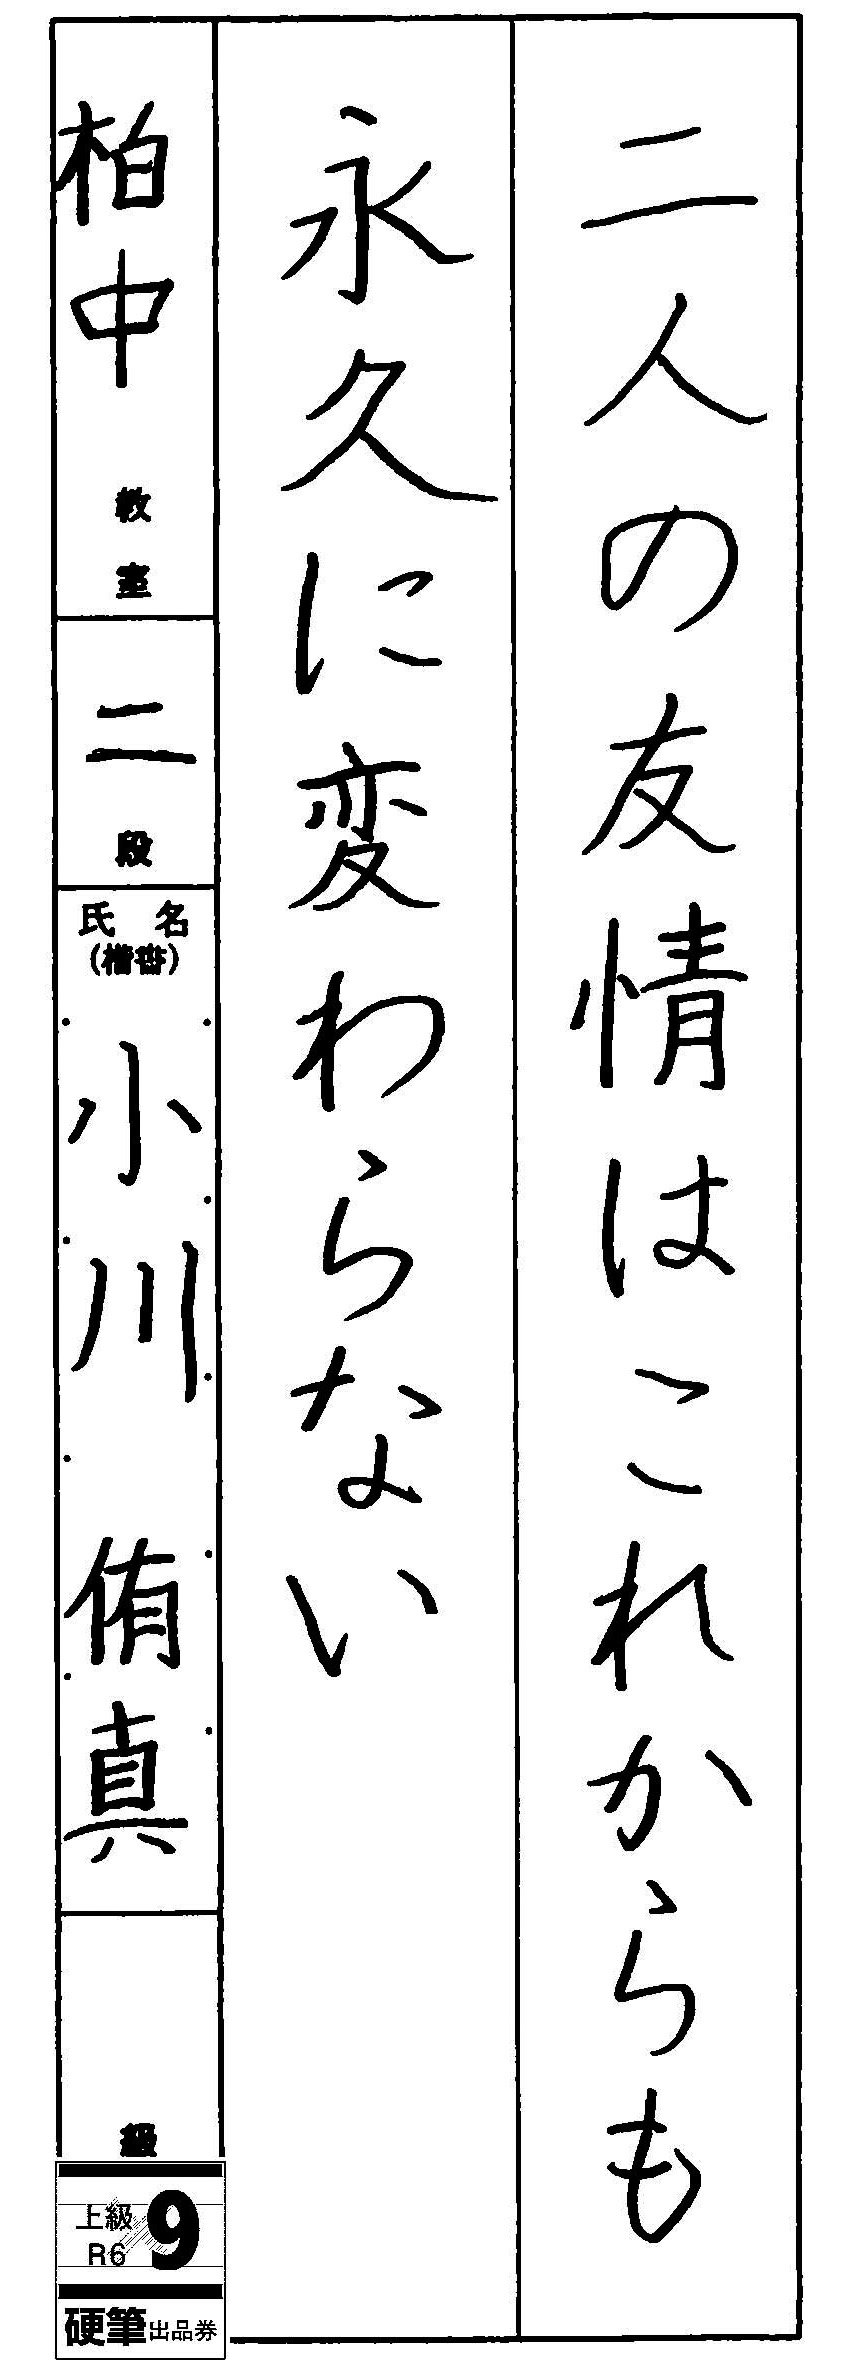 二人の友情はこれからも
永久に変わらない
柏中教室
二段
氏名
(楷書)
小川侑真
級
上級
R6
9
硬筆出品券